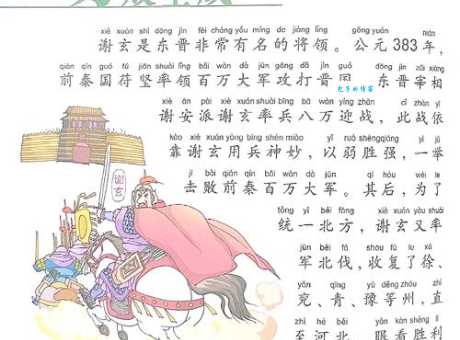 xiè xuán shì dōng jìn fēi cháng yǒu míng de jiàng lǐng gōng yuán nián
谢玄是东晋非常有名的将领。公元383年，
qián qín guó fú jiān shuài lǐng bǎi wàn dà jūn gōng dǎ jìn dōng jìn zǎi xiàng
前秦国符坚率领百万大军攻打晋国　东晋宰相
xiè ān pài xiè xuán shuài bīng bā wàn yíng zhàn cǐ zhàn yī
谢安派谢玄率兵八万迎战，此战依
kào xiè xuán yòng bīng shén miào yǐ ruò shèng qiáng yī jǔ
靠谢玄用兵神妙，以弱胜强，一举
jī bài qián qín bǎi wàn dà jūn qí hòu wèi le
击败前秦百万大军。其后，为了
tǒng yī běi fāng xiè xuán yòu shuài
统一北方，谢玄又率
jūn běi fá shōu fù le xú
军北伐，收复了徐、
yǎn qīng yù děng zhōu zhí
兖、青、豫等州，直
zhì hé běi yǎn kàn shèng lì
至河北。眼看胜利
谢玄